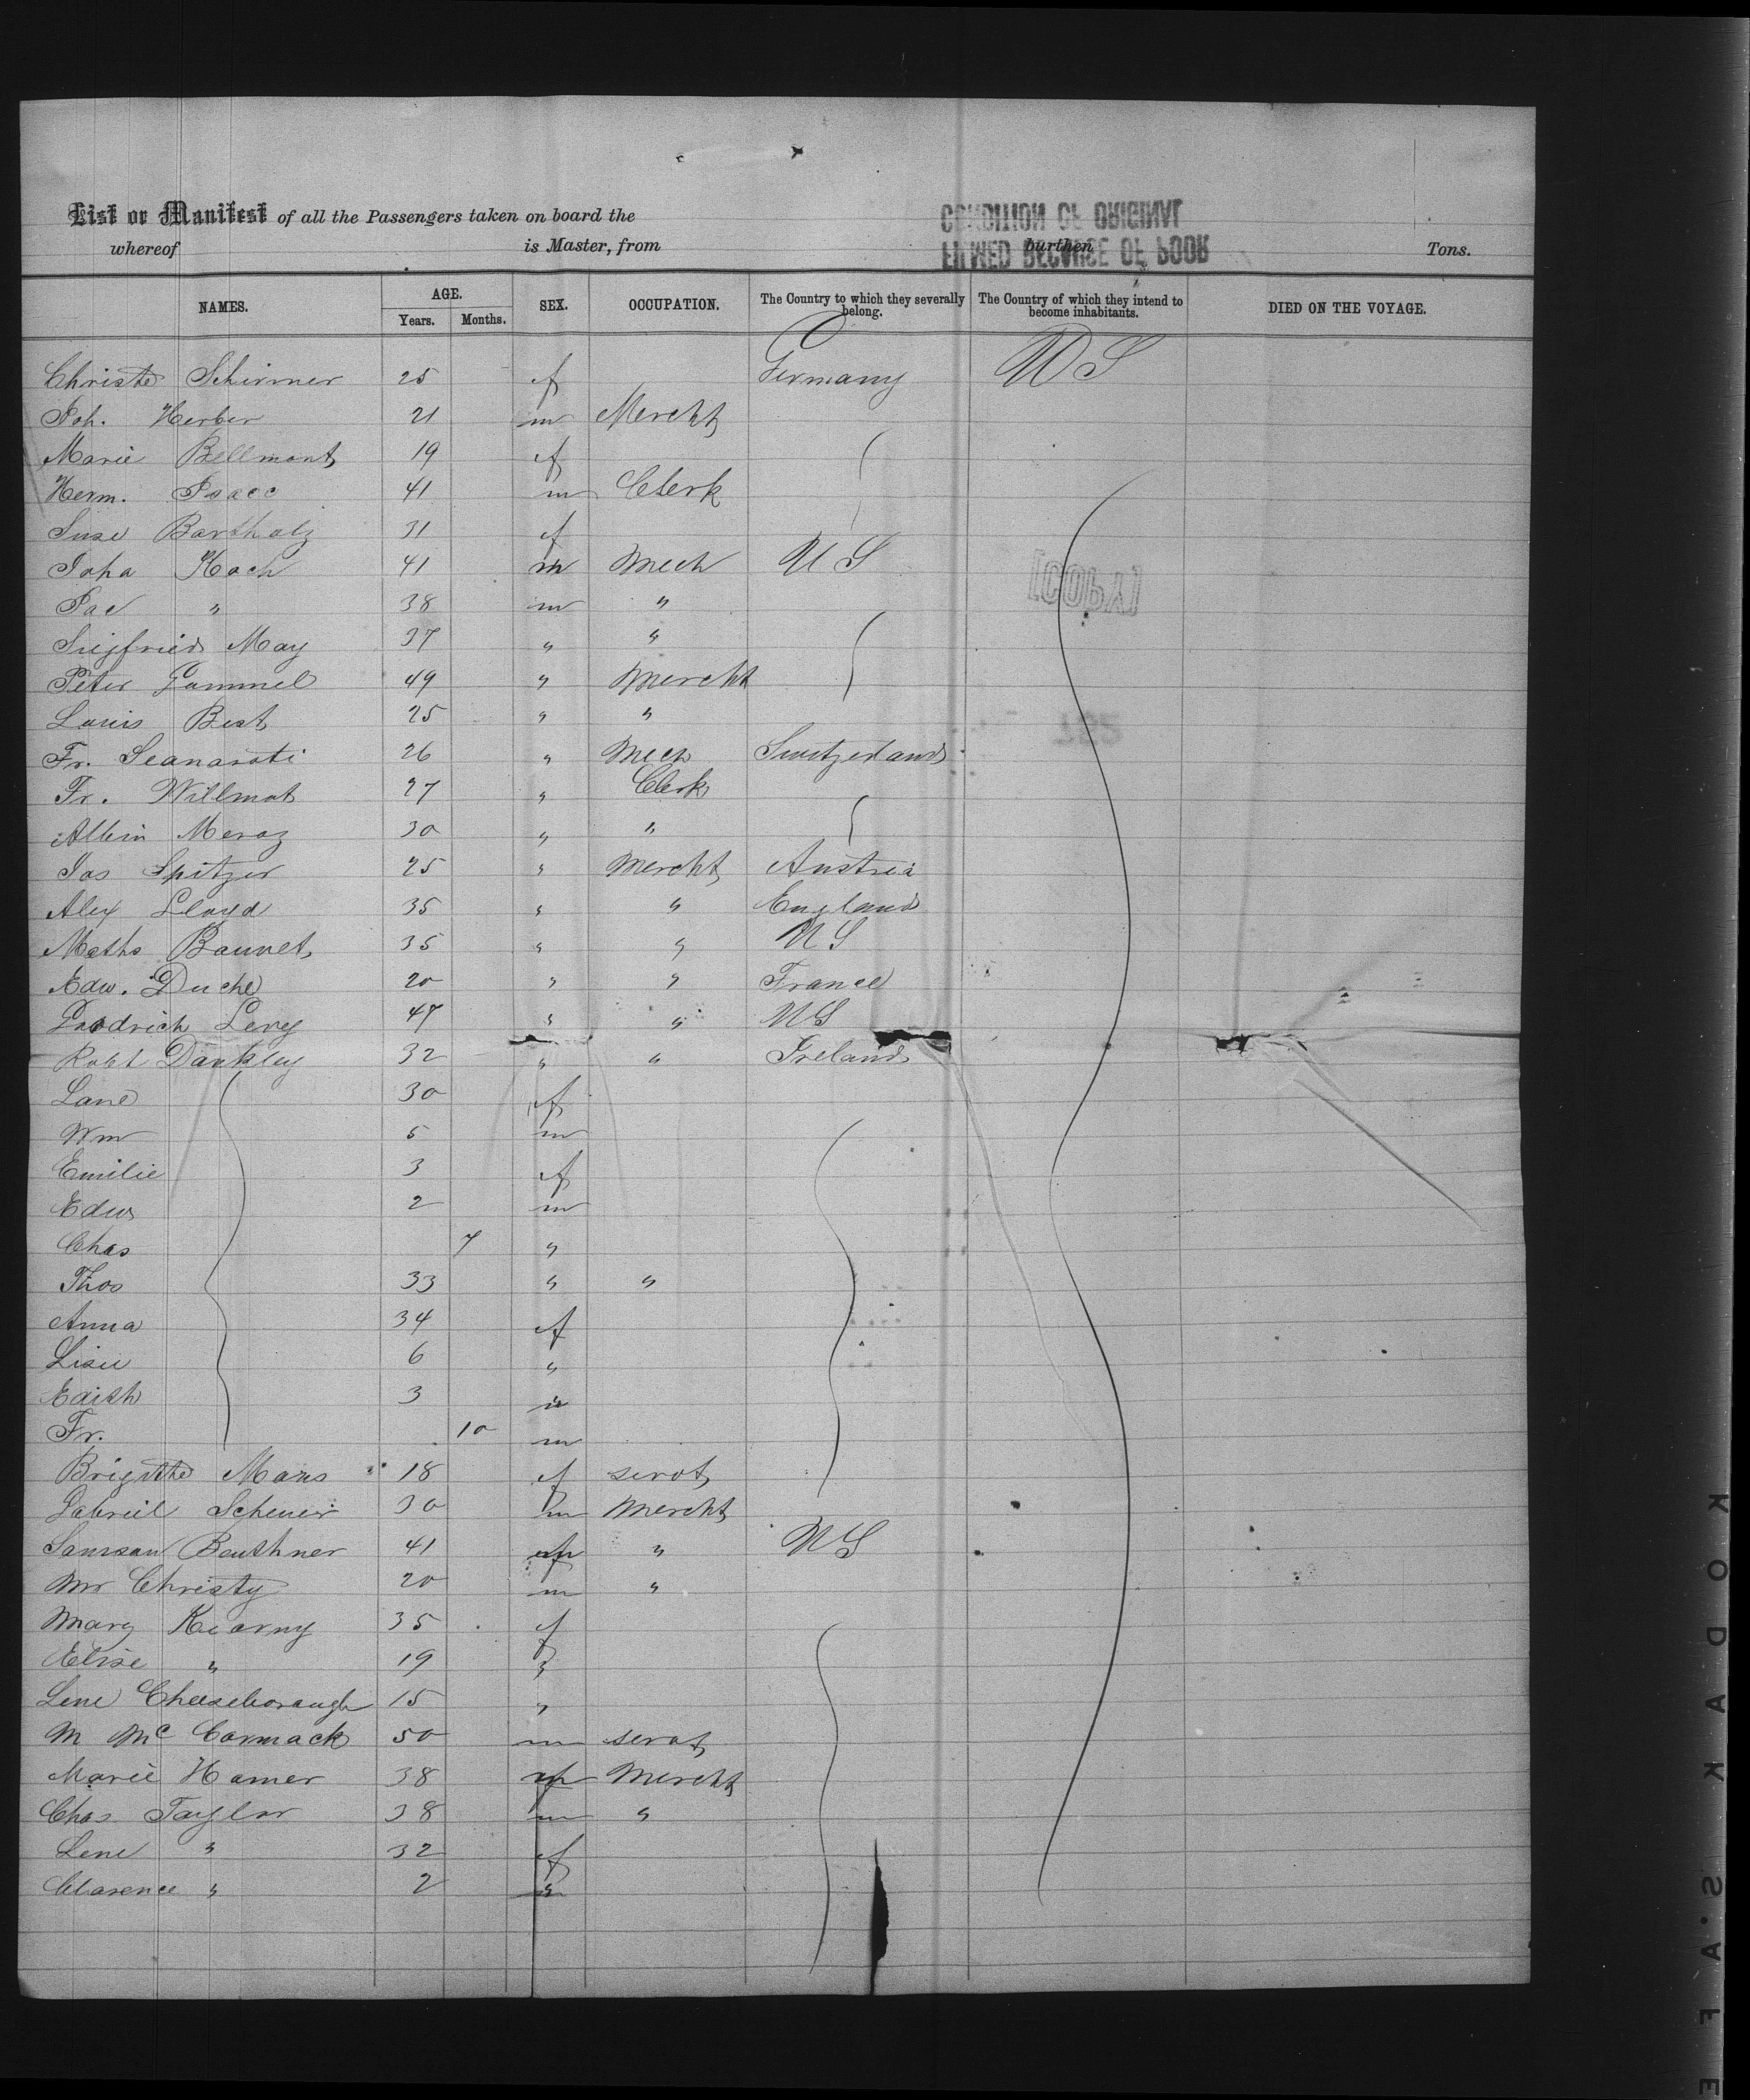 List or Manifest of all the Passengers taken on board the
whereof is Master, from burthen Tons.
CONDITION OF ORIGINAL
FILMED BECAUSE OF POOR
NAMES. AGE. SEX. OCCUPATION. The Country to which they severally belong. The Country of which they intend to become inhabitants. DIED ON THE VOYAGE.
Years. Months.
Christe Schirmer 25 f Germany U S
Joh. Herber 21 m Mercht
Marie Bellmont 19 f
Herm. Isaac 41 m Clerk
Suse Bartholz 31 f
Joha Koch 41 m Mech U S
[COPY]
Jac " 38 m "
Siegfried May 37 " "
Peter Gammel 49 " Mercht
Louis Best 25 " "
Fr. Seanarati 26 " Mech Switzerland
Fr. Willmot 27 " Clerk
Albin Meroz 30 " "
Jos Spitzer 25 " Mercht Austria
Alex Lloyd 35 " " England
Maths Bauvet 35 " " U S
Edw. Duche 20 " " France
Goodrich Levy 47 " " U S
Robt Dankley 32 " " Ireland
Lane 30 f
Wm 5 m
Emilie 3 f
Edw 2 m
Chas 7 "
Thos 33 " "
Anna 34 f
Lisie 6 "
Edith 3
Fr. 10 m
Brigitthe Mars 18 f servt
Gabriel Scheuer 30 m Mercht
Samson Beuthner 41 " U S
Mr Christy 20 m "
Mary Kearny 35 f
Elise " 19 "
Lene Cheeseborough 15 "
M Mc Cormack 50 m servt
Marie Hamer 38 Mercht
Chas Taylor 38 m "
Lene " 32 f
Clarence " 2
KODAK S.AFE